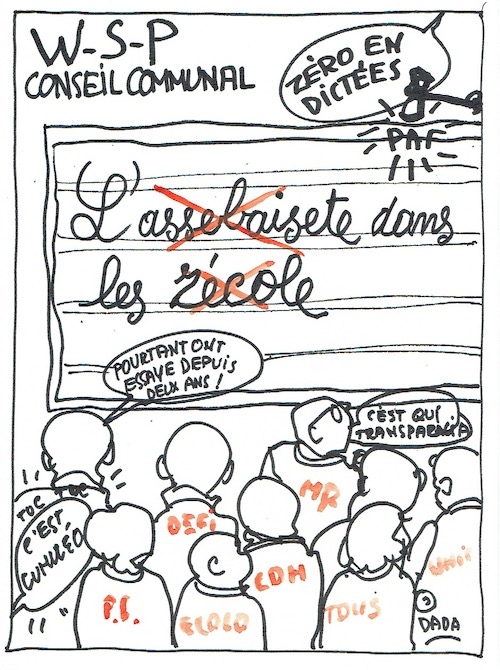 W-S-P
CONSEIL COMMUNAL
ZÉRO EN
DICTÉES
PAF
L'assebaisete dans
les zécole
POURTANT ONT
ESSAYE DEPUIS
DEUX ANS !
C'EST QUI
TOC TOC
C'EST
CUMULÉO
MR
DEFI
CDH
P.S.
ECOLO
TOUS
DADA